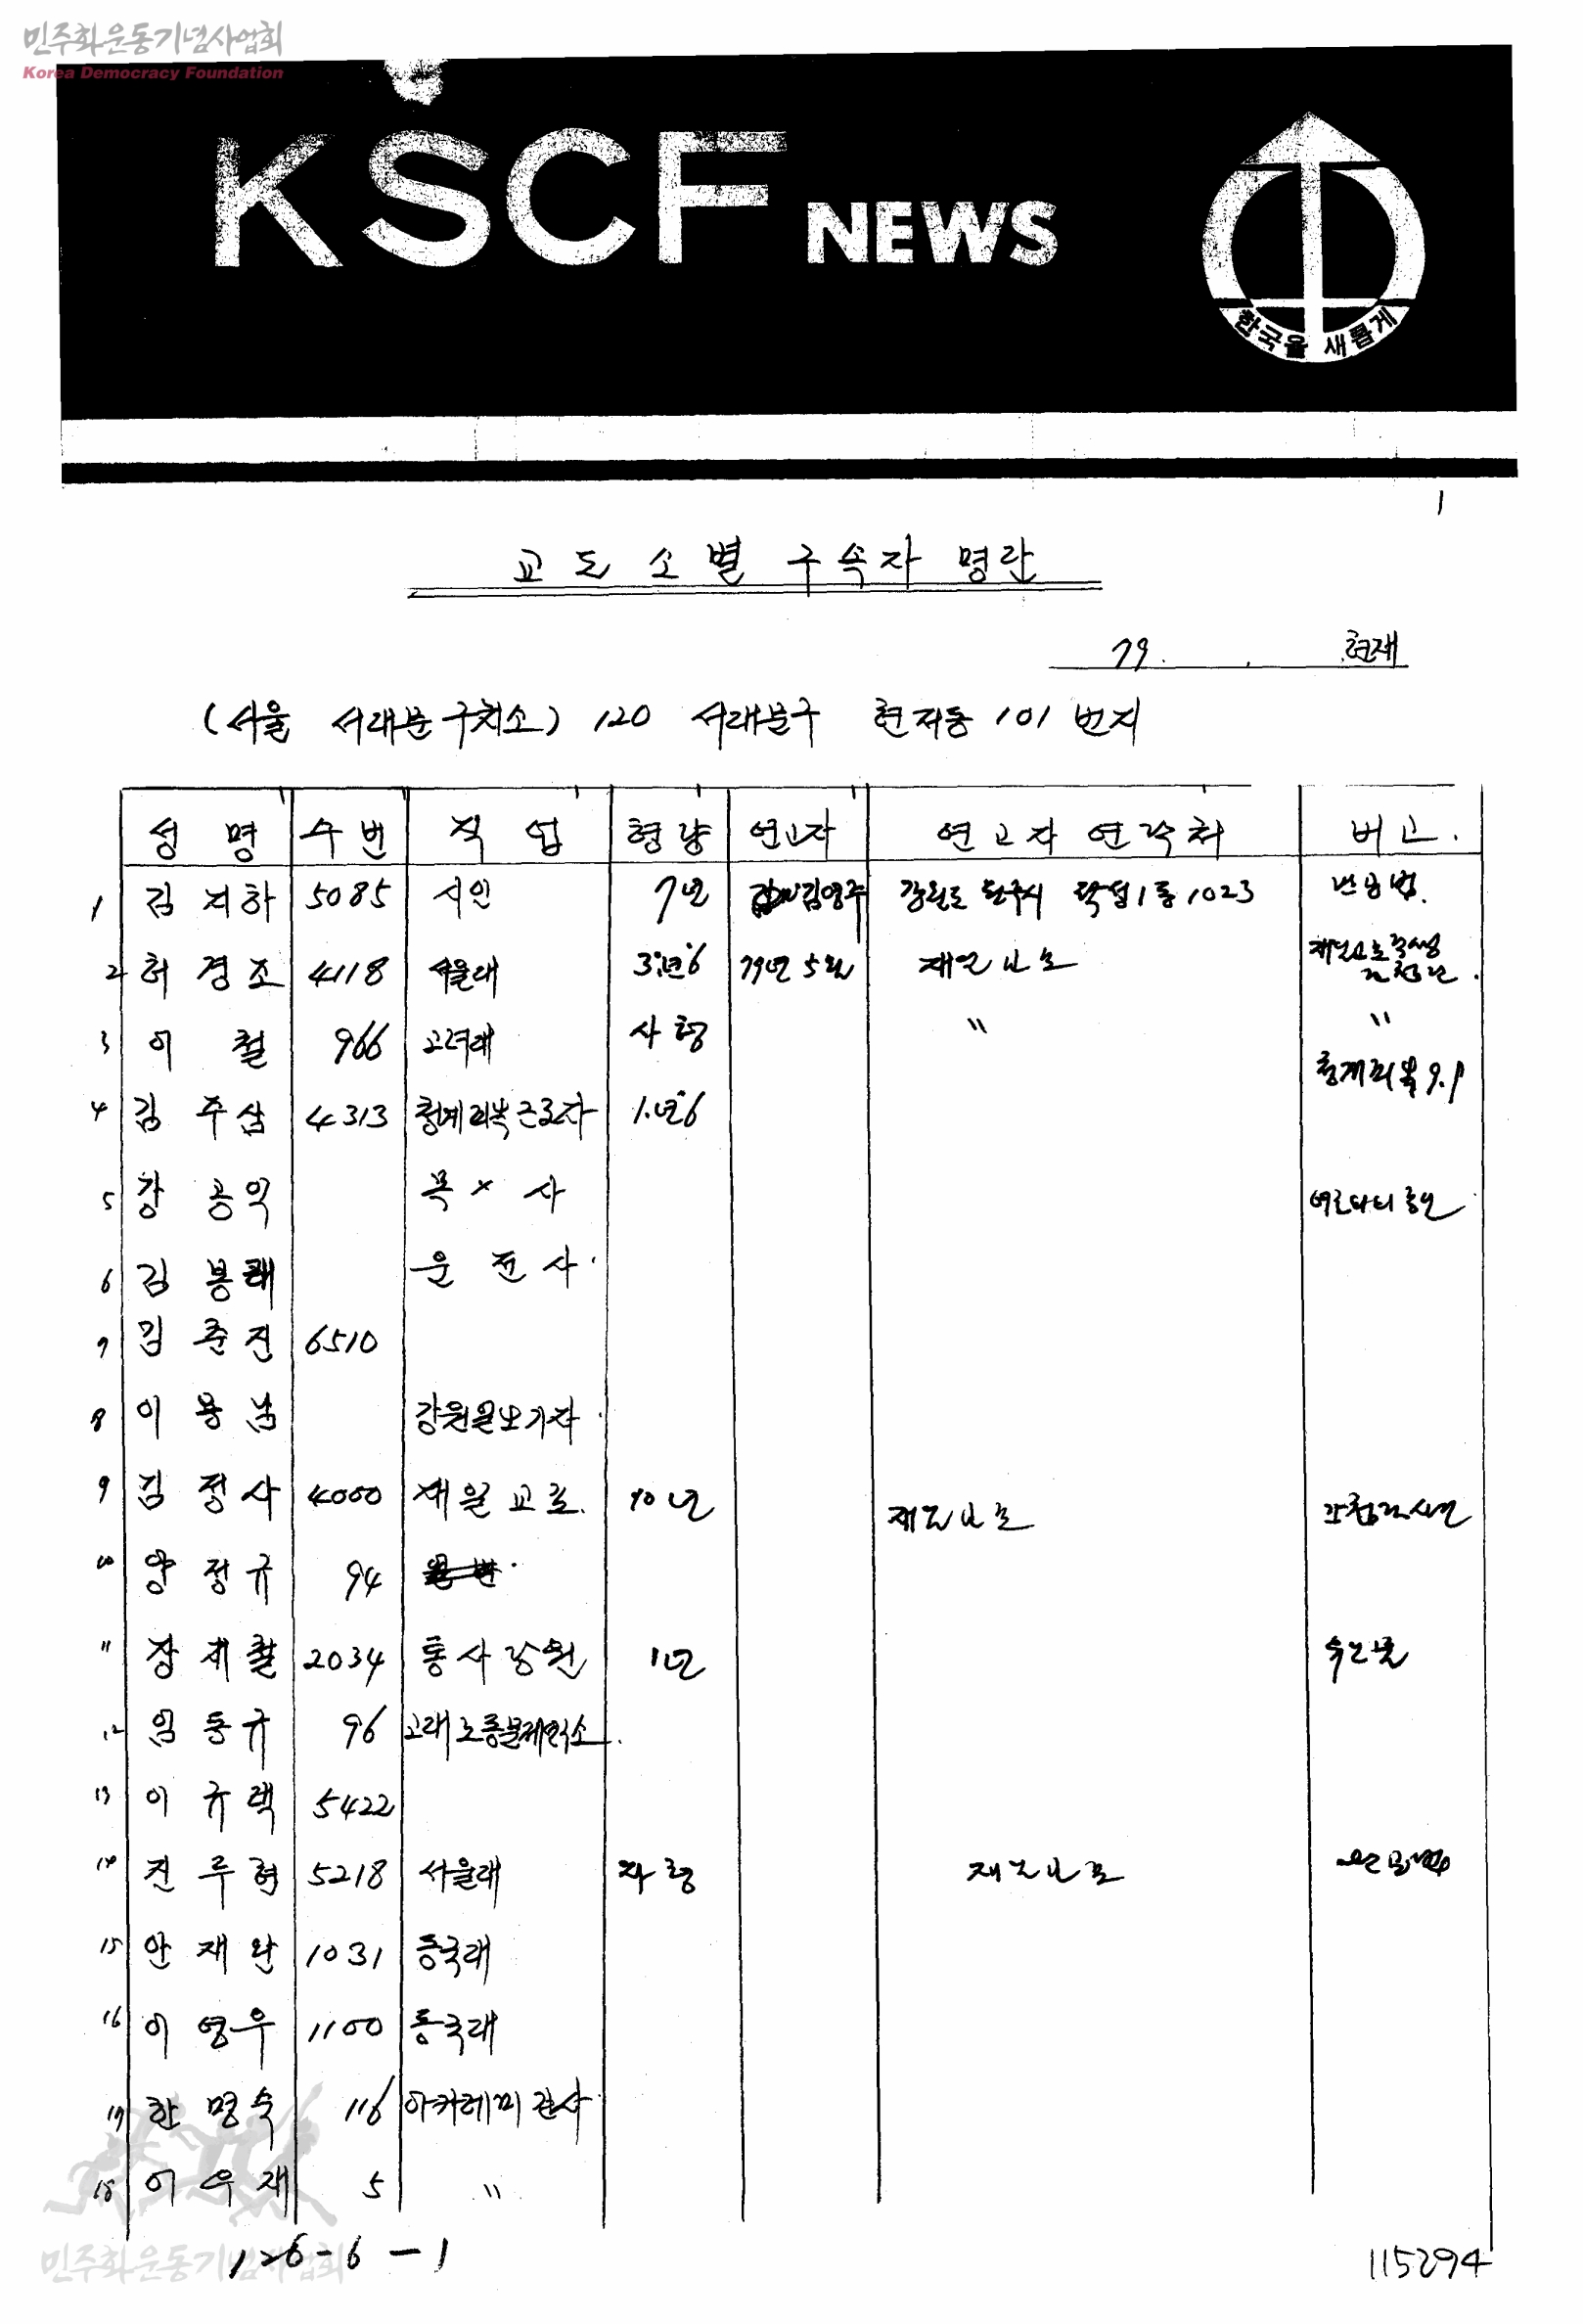 민주화운동기념사업회
Korea Democracy Foundation
KSCF NEWS
한국을 새롭게
1
교도소별 구속자 명단
79. . 현재
(서울 서대문구치소) 120 서대문구 현저동 101 번지
성명 수번 직업 형량 연고자 연고자 연락처 비고.
1 김지하 5085 시인 7년 김영주 강원도 원주시 학성1동 1023 반공법.
2 허경조 4118 서울대 3년6 79년 5월 재일교포
3 이철 966 고려대 사형 〃 〃
4 김주삼 4313 청계피복 근로자 1.년6 청계피복 9.9
5 강공익 목 × 사
6 김봉태 운전사.
7 김춘진 6510
8 이용남 강원일보기자.
9 김정사 4000 재일교포. 10년 재일교포 간첩
10 양정규 94
11 장재철 2034 통사강원 1년
12 임동규 96 고대노동문제연구소.
13 이규택 5422
14 진두현 5218 서울대 사형 재일교포
15 안재완 1031 동국대
16 이영우 1100 동국대
17 한명숙 116 아카데미 간사.
18 이우재 5 〃
126-6-1
민주화운동기념사업회
115294